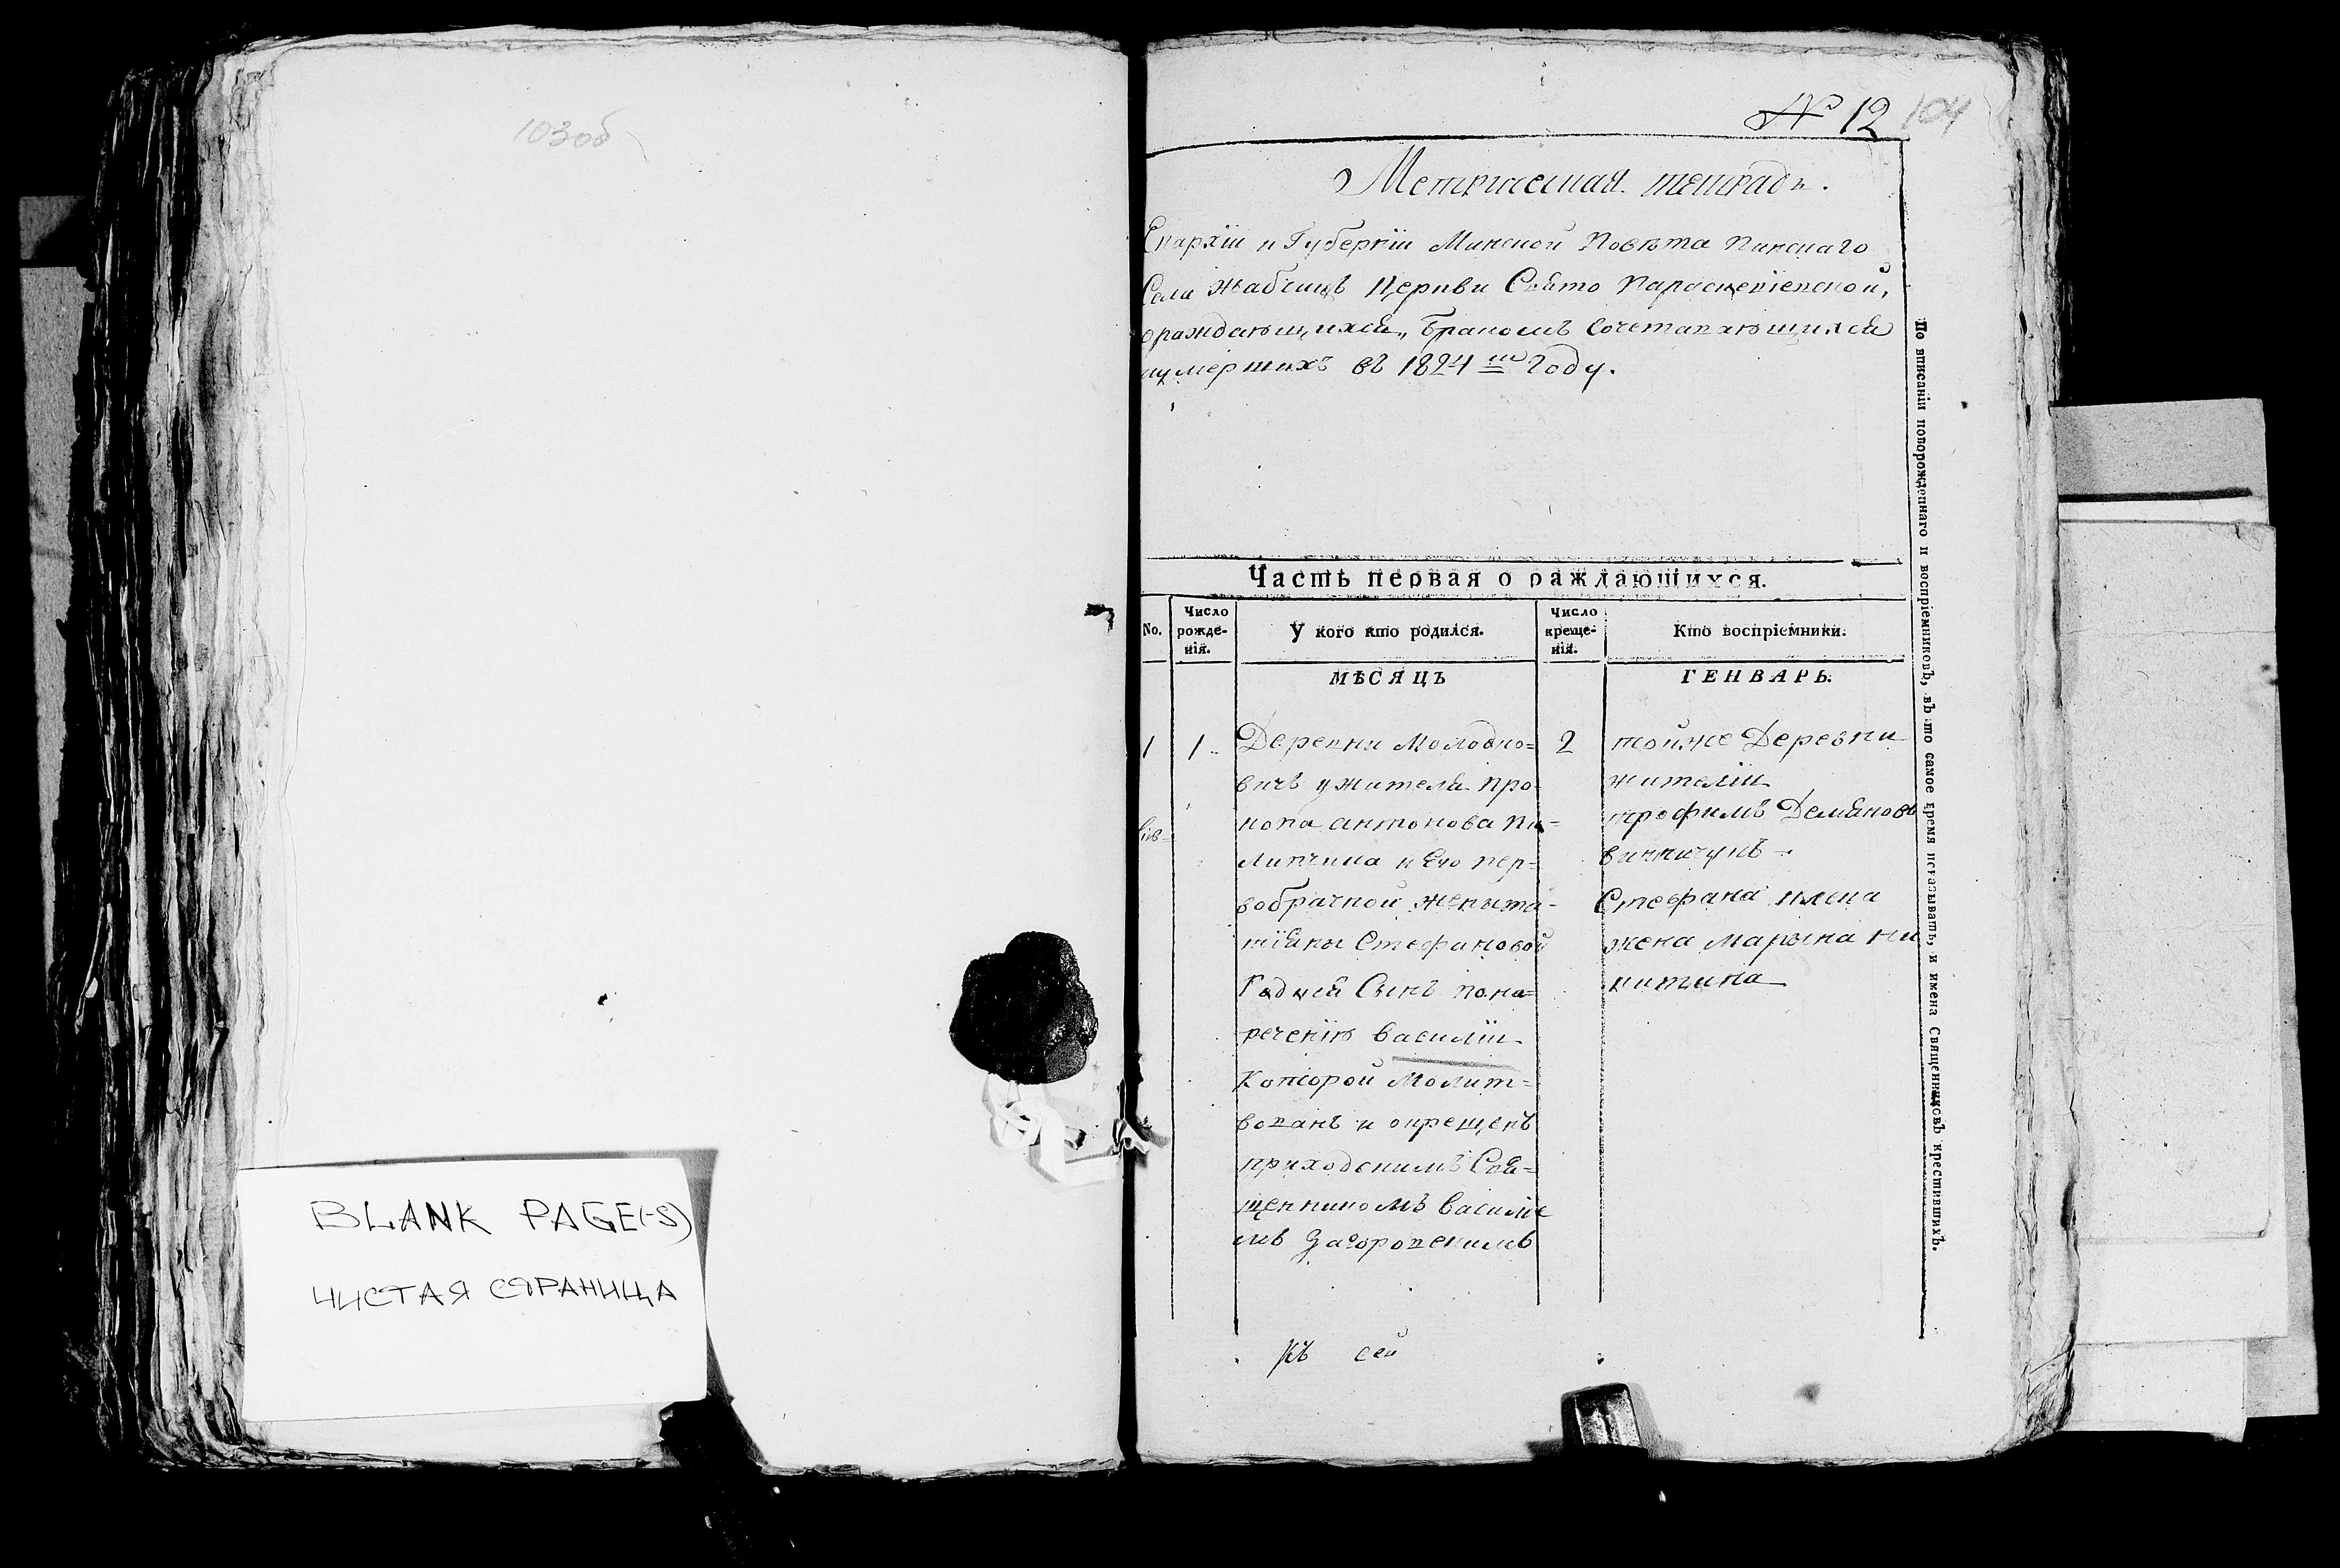 103об
BLANK PAGE(-S)
ЧИСТАЯ СТРАНИЦА
№ 12 104
Метрическая тетрадь.
Епархіи и Губерніи Минской Повѣта Пинскаго
Села Жабчицъ Церкви Свято Параскевіевской,
о раждающихся, бракомъ сочетавающихся
и умершихъ въ 1824 м году.
Часть первая о раждающихся.
No. Число рожденія. У кого кто родился. Число крещенія. Кто воспріемники.
МѢСЯЦЪ ГЕНВАРЬ.
1 1 Деревни Молодко=
вичъ у жителя Про-
копа Антонова
и его пер-
вобрачной жены Та-
тіяны Стефановой
Родися Сынъ пона=
реченію Василіи
Которой Молит=
вованъ и окрещенъ
приходскимъ Свя=
щенникомъ Василіе
мъ Загоровскимъ
2 тойже Деревни
жителіи
Трофимъ Демяновъ
Стефана
жена Марына Ни
китина
къ сей
По вписаніи новорожденнаго и воспріемниковъ, въ то самое время показывать, и имена Священниковъ крестившихъ.